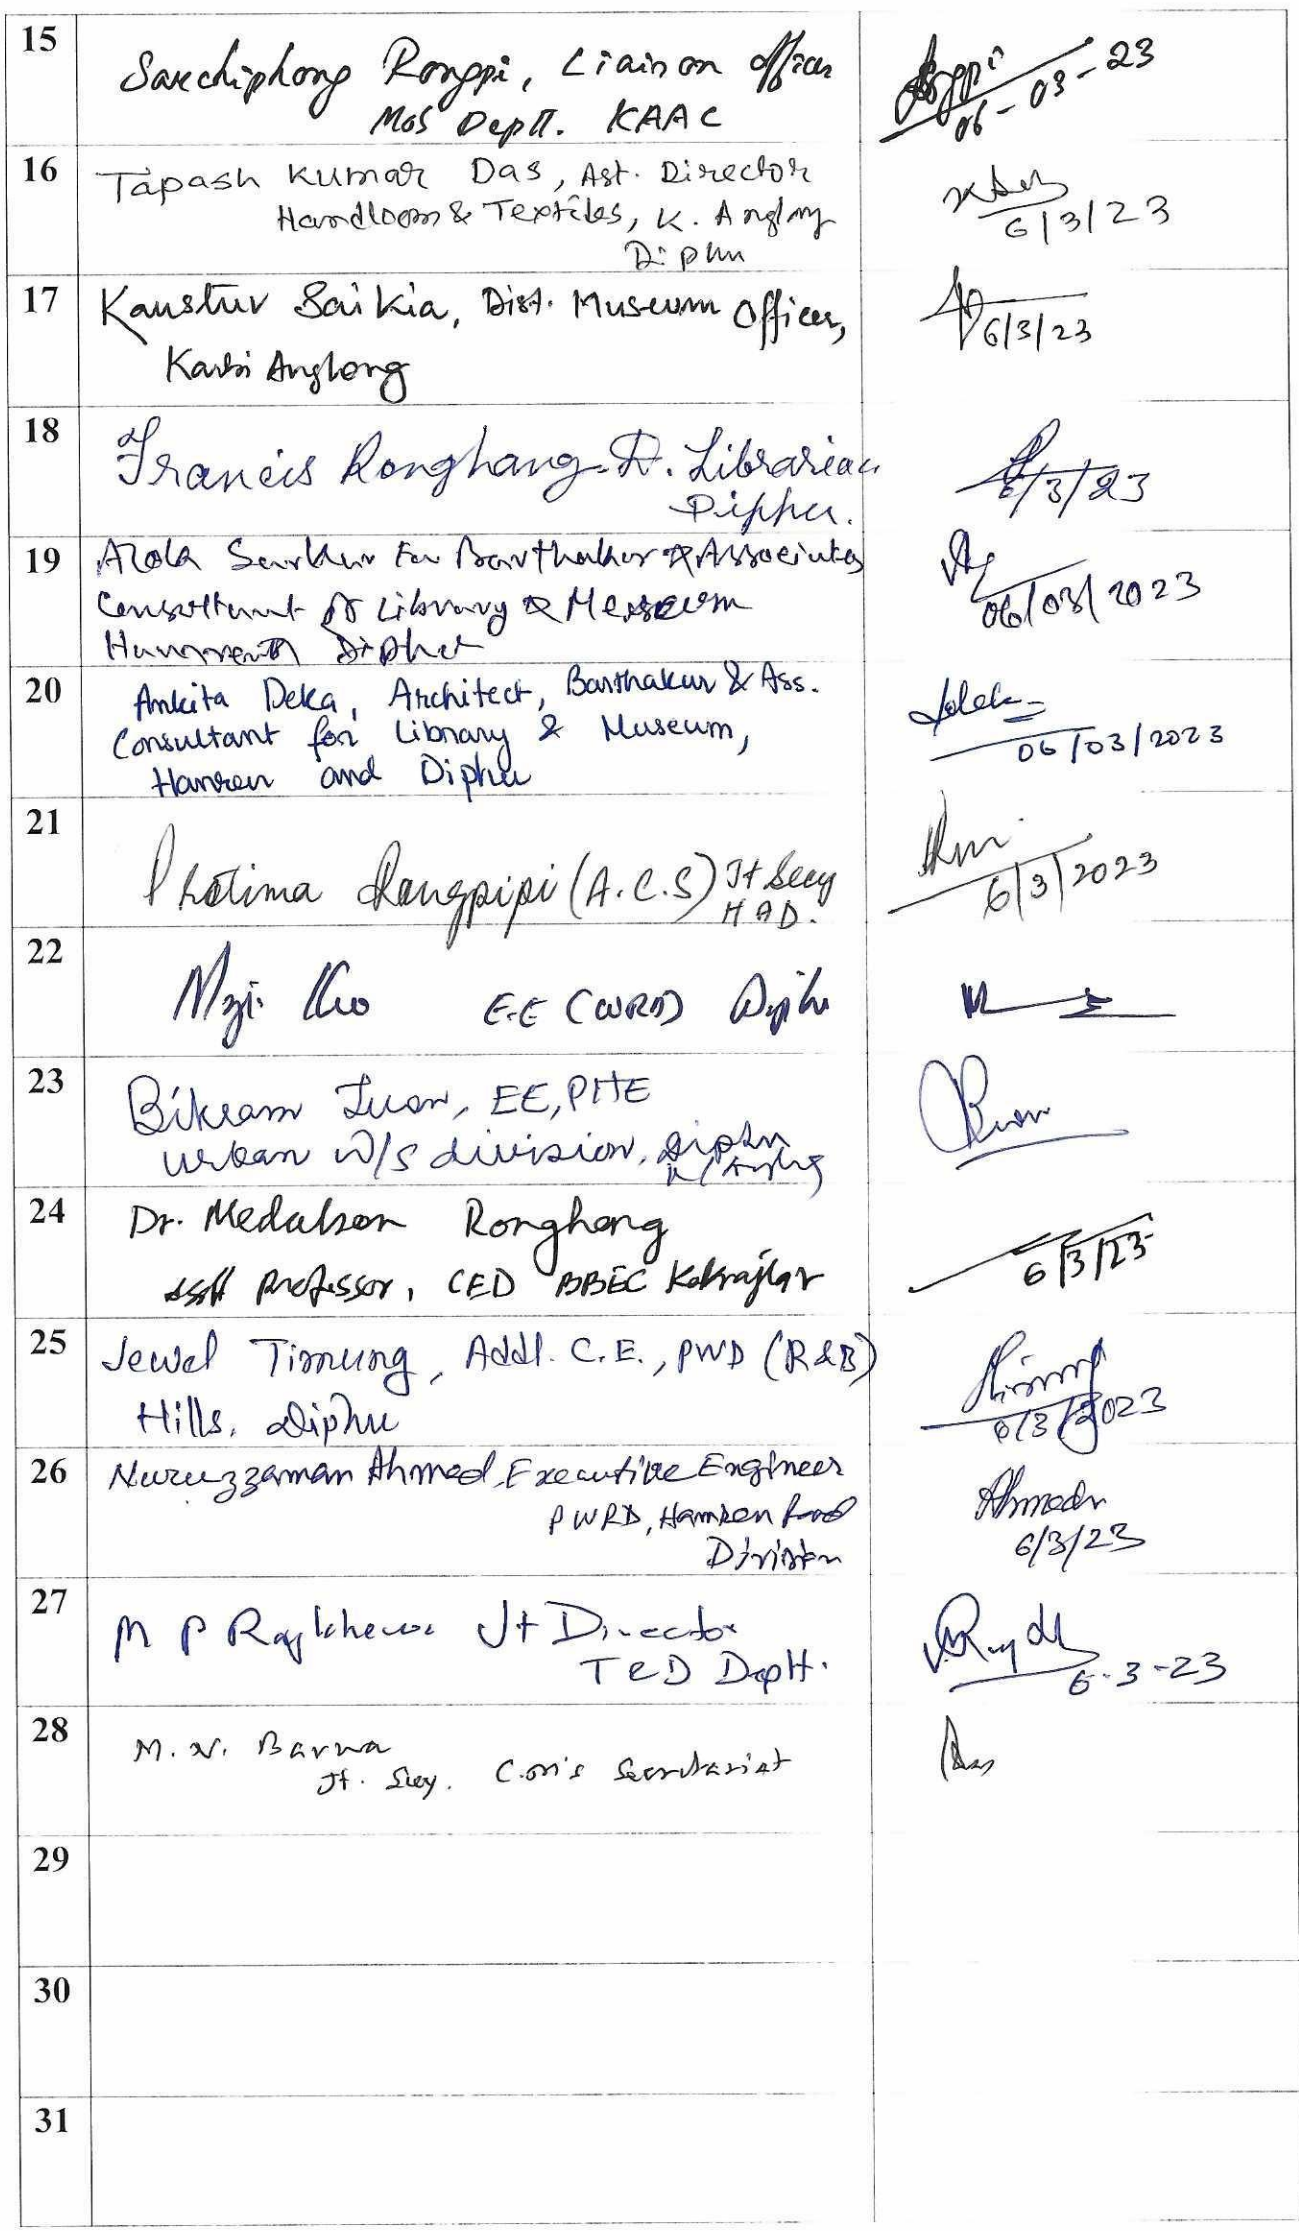 15
Sarchiphong Rongpi, Liaison officer
MoS Deptt. KAAC
06-03-23
16
Tapash Kumar Das, Ast. Director
Handloom & Textiles, K. Anglong
Diphu
6/3/23
17
Kaustuv Saikia, Dist. Museum Officer,
Karbi Anglong
6/3/23
18
Francis Ronghang. D. Librarian
Diphu.
6/3/23
19
Sarkar For Barthakur & Associates
Consultant for Library & Museum
Diphu
06/03/2023
20
Ankita Deka, Architect, Barthakur & Ass.
Consultant for Library & Museum,
Hamren and Diphu
06/03/2023
21
Pratima Rangpipi (A.C.S) Jt Secy
HAD.
6/3/2023
22
E.E (WRD) Diphu
23
Bikram Teron, EE, PHE
Urban W/S division, Diphu
K/Anglong
24
Dr. Medalson Ronghang
Asstt Professor, CED BBEC Kokrajhar
6/3/23
25
Jewel Timung, Addl. C.E., PWD (R&B)
Hills, Diphu
6/3/2023
26
Nuruzzaman Ahmed, Executive Engineer
PWRD, Hamren Road
Division
Ahmed
6/3/23
27
M P Rajkhowa Jt Director
T&CD Deptt.
6-3-23
28
M. N. Barua
Jt. Secy. C.M's Secretariat
29
30
31